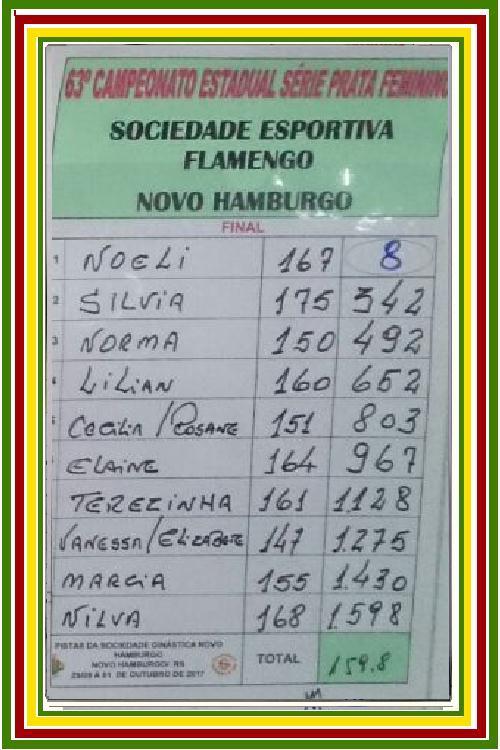 63º CAMPEONATO ESTADUAL SÉRIE PRATA FEMININO
SOCIEDADE ESPORTIVA
FLAMENGO
NOVO HAMBURGO
FINAL
1 NOELI 167 8
2 SILVIA 175 342
3 NORMA 150 492
4 LILIAN 160 652
CECILIA / ROSANE 151 803
ELAINE 164 967
TEREZINHA 161 1128
VANESSA/ELIZABETE 147 1.275
MARCIA 155 1.430
NILVA 168 1.598
PISTAS DA SOCIEDADE GINÁSTICA NOVO
HAMBURGO
NOVO HAMBURGO/ RS
OUTUBRO DE 2017
TOTAL 159.8